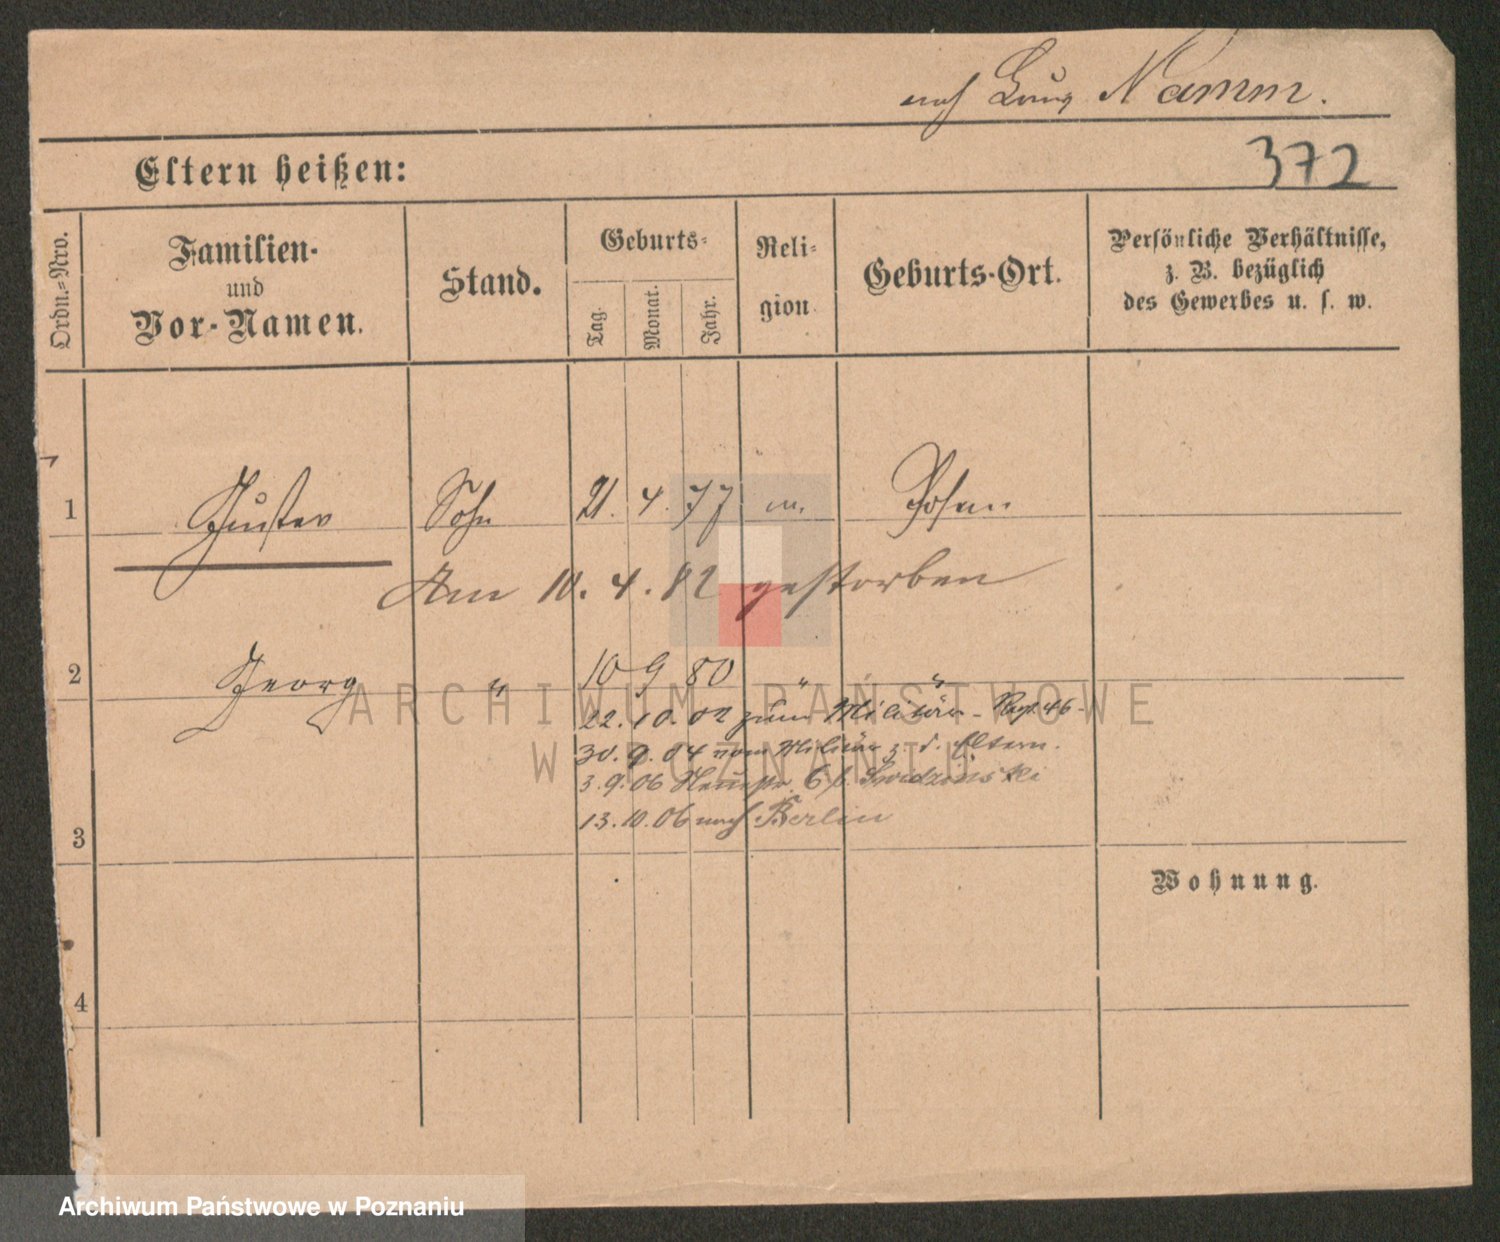 Namm.
372
Eltern heißen:
Ordn.-Nro.
Familien-
und
Vor-Namen.
Stand.
Geburts-
Tag.
Monat.
Jahr.
Reli-
gion
Geburts-Ort.
Persönliche Verhältnisse,
z. B. bezüglich
des Gewerbes u. s. w.
1 Gustav Sohn 21. 4. 77 m. Posen
Am 10. 4. 82 gestorben
2 Georg " 10 9 80 " "
22. 10. 02 zum Militär - Regt. 46-
30. 9. 04 vom Militär z. d. Eltern.
3. 9. 06 b.
13. 10. 06 nach Berlin
3
Wohnung.
4
ARCHIWUM PAŃSTWOWE
W POZNANIU
Archiwum Państwowe w Poznaniu